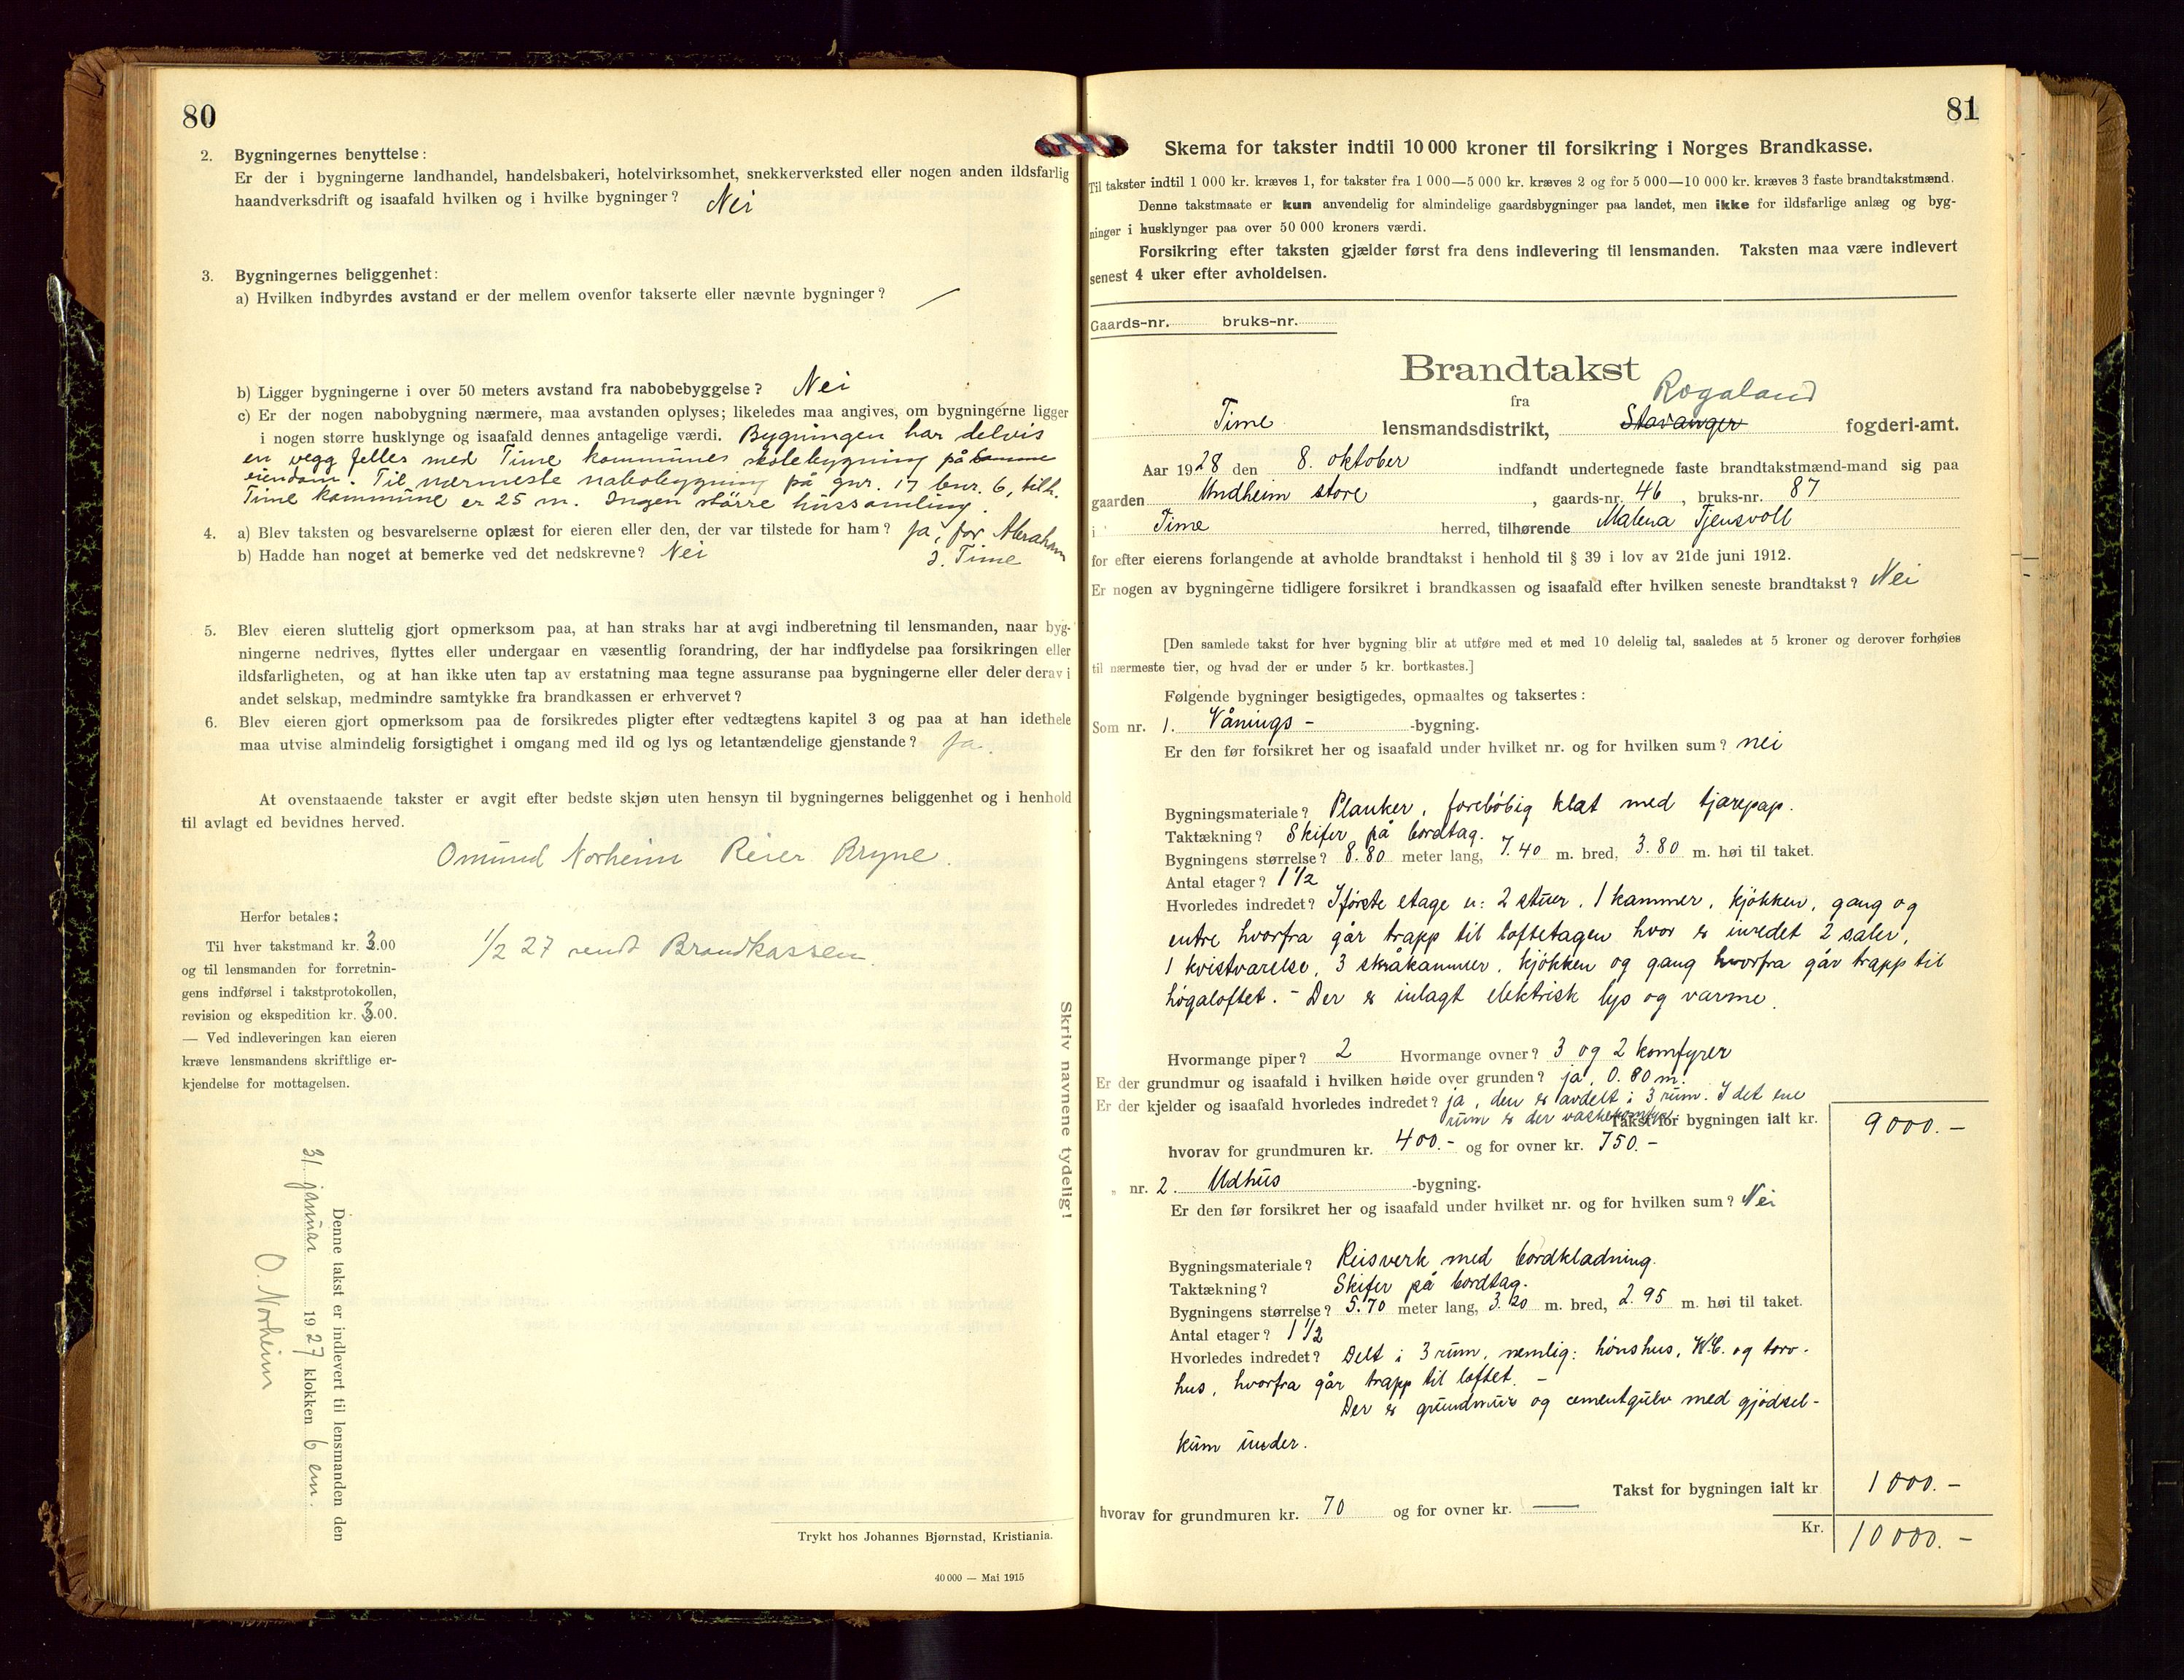 80
2. Bygningernes benyttelse:
Er der i bygningerne landhandel, handelsbakeri, hotelvirksomhet, snekkerverksted eller nogen anden ildsfarlig
haandverksdrift og isaafald hvilken og i hvilke bygninger? Nei
3. Bygningernes beliggenhet:
a) Hvilken indbyrdes avstand er der mellem ovenfor takserte eller nævnte bygninger? —
b) Ligger bygningerne i over 50 meters avstand fra nabobebyggelse? Nei
c) Er der nogen nabobygning nærmere, maa avstanden oplyses; likeledes maa angives, om bygningerne ligger
i nogen større husklynge og isaafald dennes antagelige værdi. Bygningen har delvis
en vegg felles med Time kommunes skolebygning på samme
eiendom. Til nærmeste nabobygning på gnr. 17 bnr. 6, tilh.
Time kommune er 25 m. Ingen större hussamling.
4. a) Blev taksten og besvarelserne oplæst for eieren eller den, der var tilstede for ham? Ja, for Abraham
b) Hadde han noget at bemerke ved det nedskrevne? Nei J. Time
5. Blev eieren sluttelig gjort opmerksom paa, at han straks har at avgi indberetning til lensmanden, naar byg-
ningerne nedrives, flyttes eller undergaar en væsentlig forandring, der har indflydelse paa forsikringen eller
ildsfarligheten, og at han ikke uten tap av erstatning maa tegne assuranse paa bygningerne eller deler derav i
andet selskap, medmindre samtykke fra brandkassen er erhvervet?
6. Blev eieren gjort opmerksom paa de forsikredes pligter efter vedtægtens kapitel 3 og paa at han idethele
maa utvise almindelig forsigtighet i omgang med ild og lys og letantændelige gjenstande? Ja.
At ovenstaaende takster er avgit efter bedste skjøn uten hensyn til bygningernes beliggenhet og i henhold
til avlagt ed bevidnes herved.
Omund Norheim Reier Bryne.
Herfor betales:
Til hver takstmand kr. 3.00
og til lensmanden for forretnin-
gens indførsel i takstprotokollen,
revision og ekspedition kr. 3.00.
— Ved indleveringen kan eieren
kræve lensmandens skriftlige er-
kjendelse for mottagelsen.
1/2 27 sendt Brandkassen.
Denne takst er indlevert til lensmanden den
31 januar 1927 klokken 6 em.
O. Norheim
Skriv navnene tydelig!
Trykt hos Johannes Bjørnstad, Kristiania.
40 000 — Mai 1915
81
Skema for takster indtil 10 000 kroner til forsikring i Norges Brandkasse.
Til takster indtil 1 000 kr. kræves 1, for takster fra 1 000—5 000 kr. kræves 2 og for 5 000—10 000 kr. kræves 3 faste brandtakstmænd.
Denne takstmaate er kun anvendelig for almindelige gaardsbygninger paa landet, men ikke for ildsfarlige anlæg og byg-
ninger i husklynger paa over 50 000 kroners værdi.
Forsikring efter taksten gjælder først fra dens indlevering til lensmanden. Taksten maa være indlevert
senest 4 uker efter avholdelsen.
Gaards-nr. bruks-nr.
Brandtakst
fra Rogaland
Time lensmandsdistrikt, Stavanger fogderi-amt.
Aar 1928 den 8. oktober indfandt undertegnede faste brandtakstmænd-mand sig paa
gaarden Undheim store, gaards-nr. 46, bruks-nr. 87
i Time herred, tilhørende Malena Tjensvoll
for efter eierens forlangende at avholde brandtakst i henhold til § 39 i lov av 21de juni 1912.
Er nogen av bygningerne tidligere forsikret i brandkassen og isaafald efter hvilken seneste brandtakst? Nei
[Den samlede takst for hver bygning blir at utføre med et med 10 delelig tal, saaledes at 5 kroner og derover forhøies
til nærmeste tier, og hvad der er under 5 kr. bortkastes.]
Følgende bygninger besigtigedes, opmaaltes og taksertes:
Som nr. 1. Vånings- -bygning.
Er den før forsikret her og isaafald under hvilket nr. og for hvilken sum? nei
Bygningsmateriale? Planker, foreløbig klæt med tjærepap.
Taktækning? Skifer på bordtag.
Bygningens størrelse? 8.80 meter lang, 7.40 m. bred, 3.80 m. høi til taket.
Antal etager? 1 1/2
Hvorledes indredet? I første etage er: 2 stuer, 1 kammer, kjøkken, gang og
entre hvorfra går trapp til loftetagen hvor er inredet 2 saler,
1 kvistværelse, 3 skråkammer, kjøkken og gang hvorfra går trapp til
høgaloftet. - Der er inlagt elektrisk lys og varme.
Hvormange piper? 2 Hvormange ovner? 3 og 2 komfyrer
Er der grundmur og isaafald i hvilken høide over grunden? ja, 0.80 m.
Er der kjelder og isaafald hvorledes indredet? ja, den er avdelt i 3 rum. I det ene
rum er der vaskekomfyr. Takst for bygningen ialt kr. 9000.-
hvorav for grundmuren kr. 400.- og for ovner kr. 750.-
„ nr. 2. Udhus -bygning.
Er den før forsikret her og isaafald under hvilket nr. og for hvilken sum? Nei
Bygningsmateriale? Reisverk med bordklædning.
Taktækning? Skifer på bordtag.
Bygningens størrelse? 5.70 meter lang, 3.20 m. bred, 2.95 m. høi til taket.
Antal etager? 1 1/2
Hvorledes indredet? Delt i 3 rum, nemlig: hønshus, W.C. og torv-
hus, hvorfra går trapp til loftet. -
Der er grundmur og cementgulv med gjødsel-
kum under.
Takst for bygningen ialt kr 1000.-
hvorav for grundmuren kr. 70 og for ovner kr. —
Kr. 10000.-